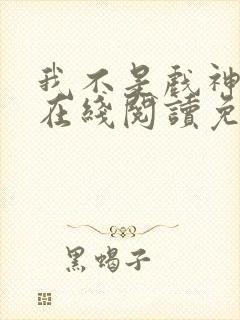 我不是戲神
在綫閱讀免
黑蝎子